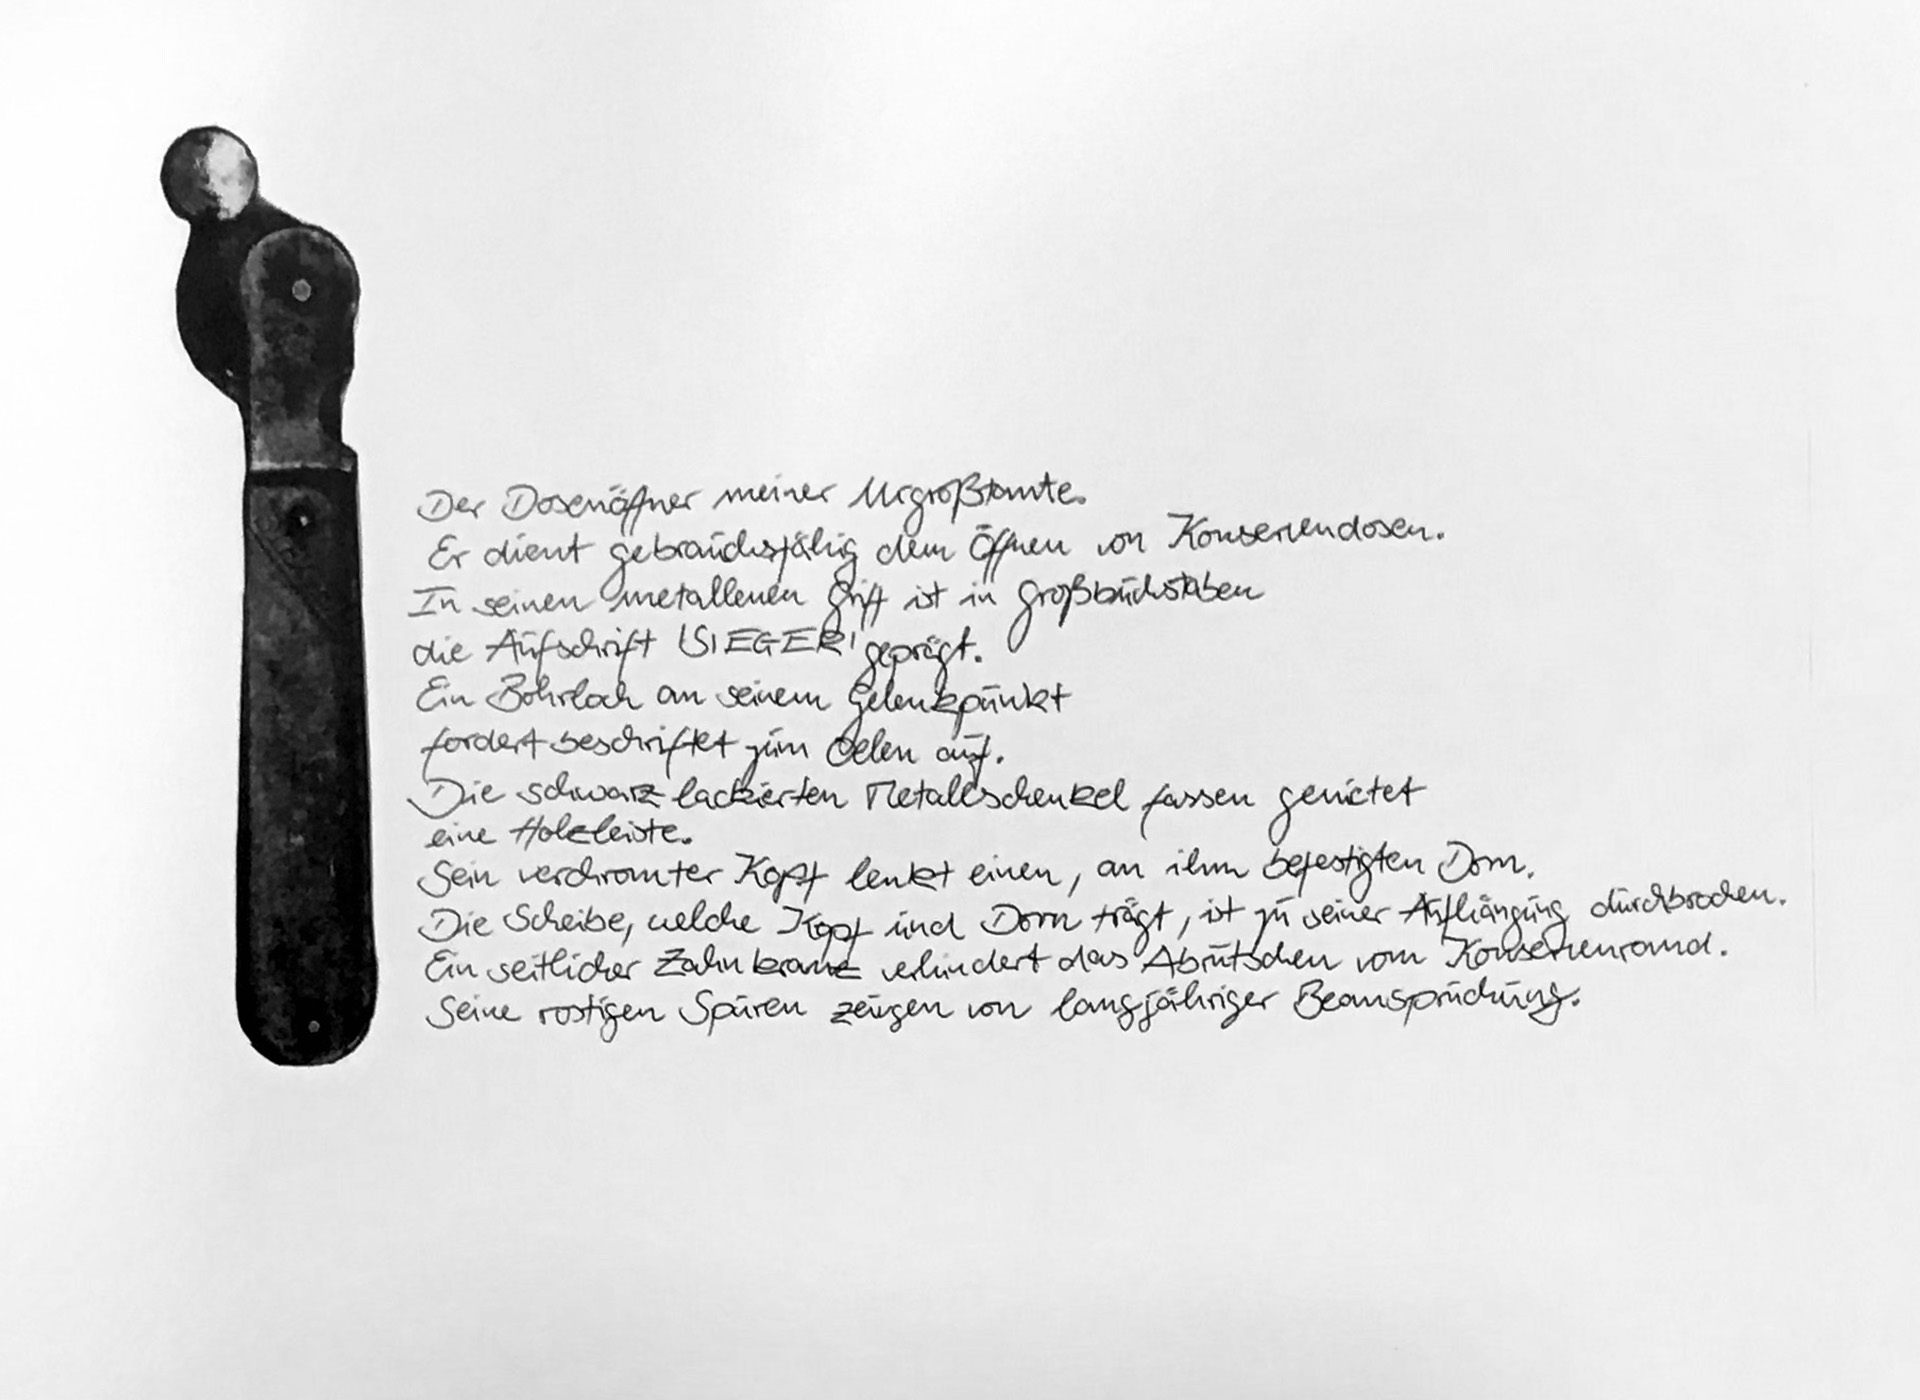 Der Dosenöffner meiner Urgroßtante.
Er dient gebrauchsfähig dem Öffnen von Konservendosen.
In seinen metallenen Griff ist in Großbuchstaben
die Aufschrift 'SIEGER' geprägt.
Ein Bohrloch an seinem Gelenkpunkt
fordert beschriftet zum Oelen auf.
Die schwarz lackierten Metallschenkel fassen genietet
eine Holzleiste.
Sein verchromter Kopf lenkt einen, an ihm befestigten Dorn.
Die Scheibe, welche Kopf und Dorn trägt, ist zu seiner Aufhängung durchbrochen.
Ein seitlicher Zahnkranz verhindert das Abrutschen vom Konservenrand.
Seine rostigen Spuren zeugen von langjähriger Beanspruchung.